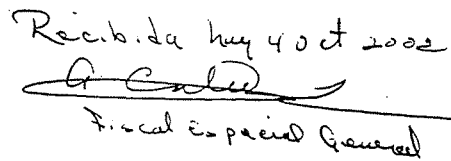 Recibida hoy 4 Oct 2002
Fiscal Especial General